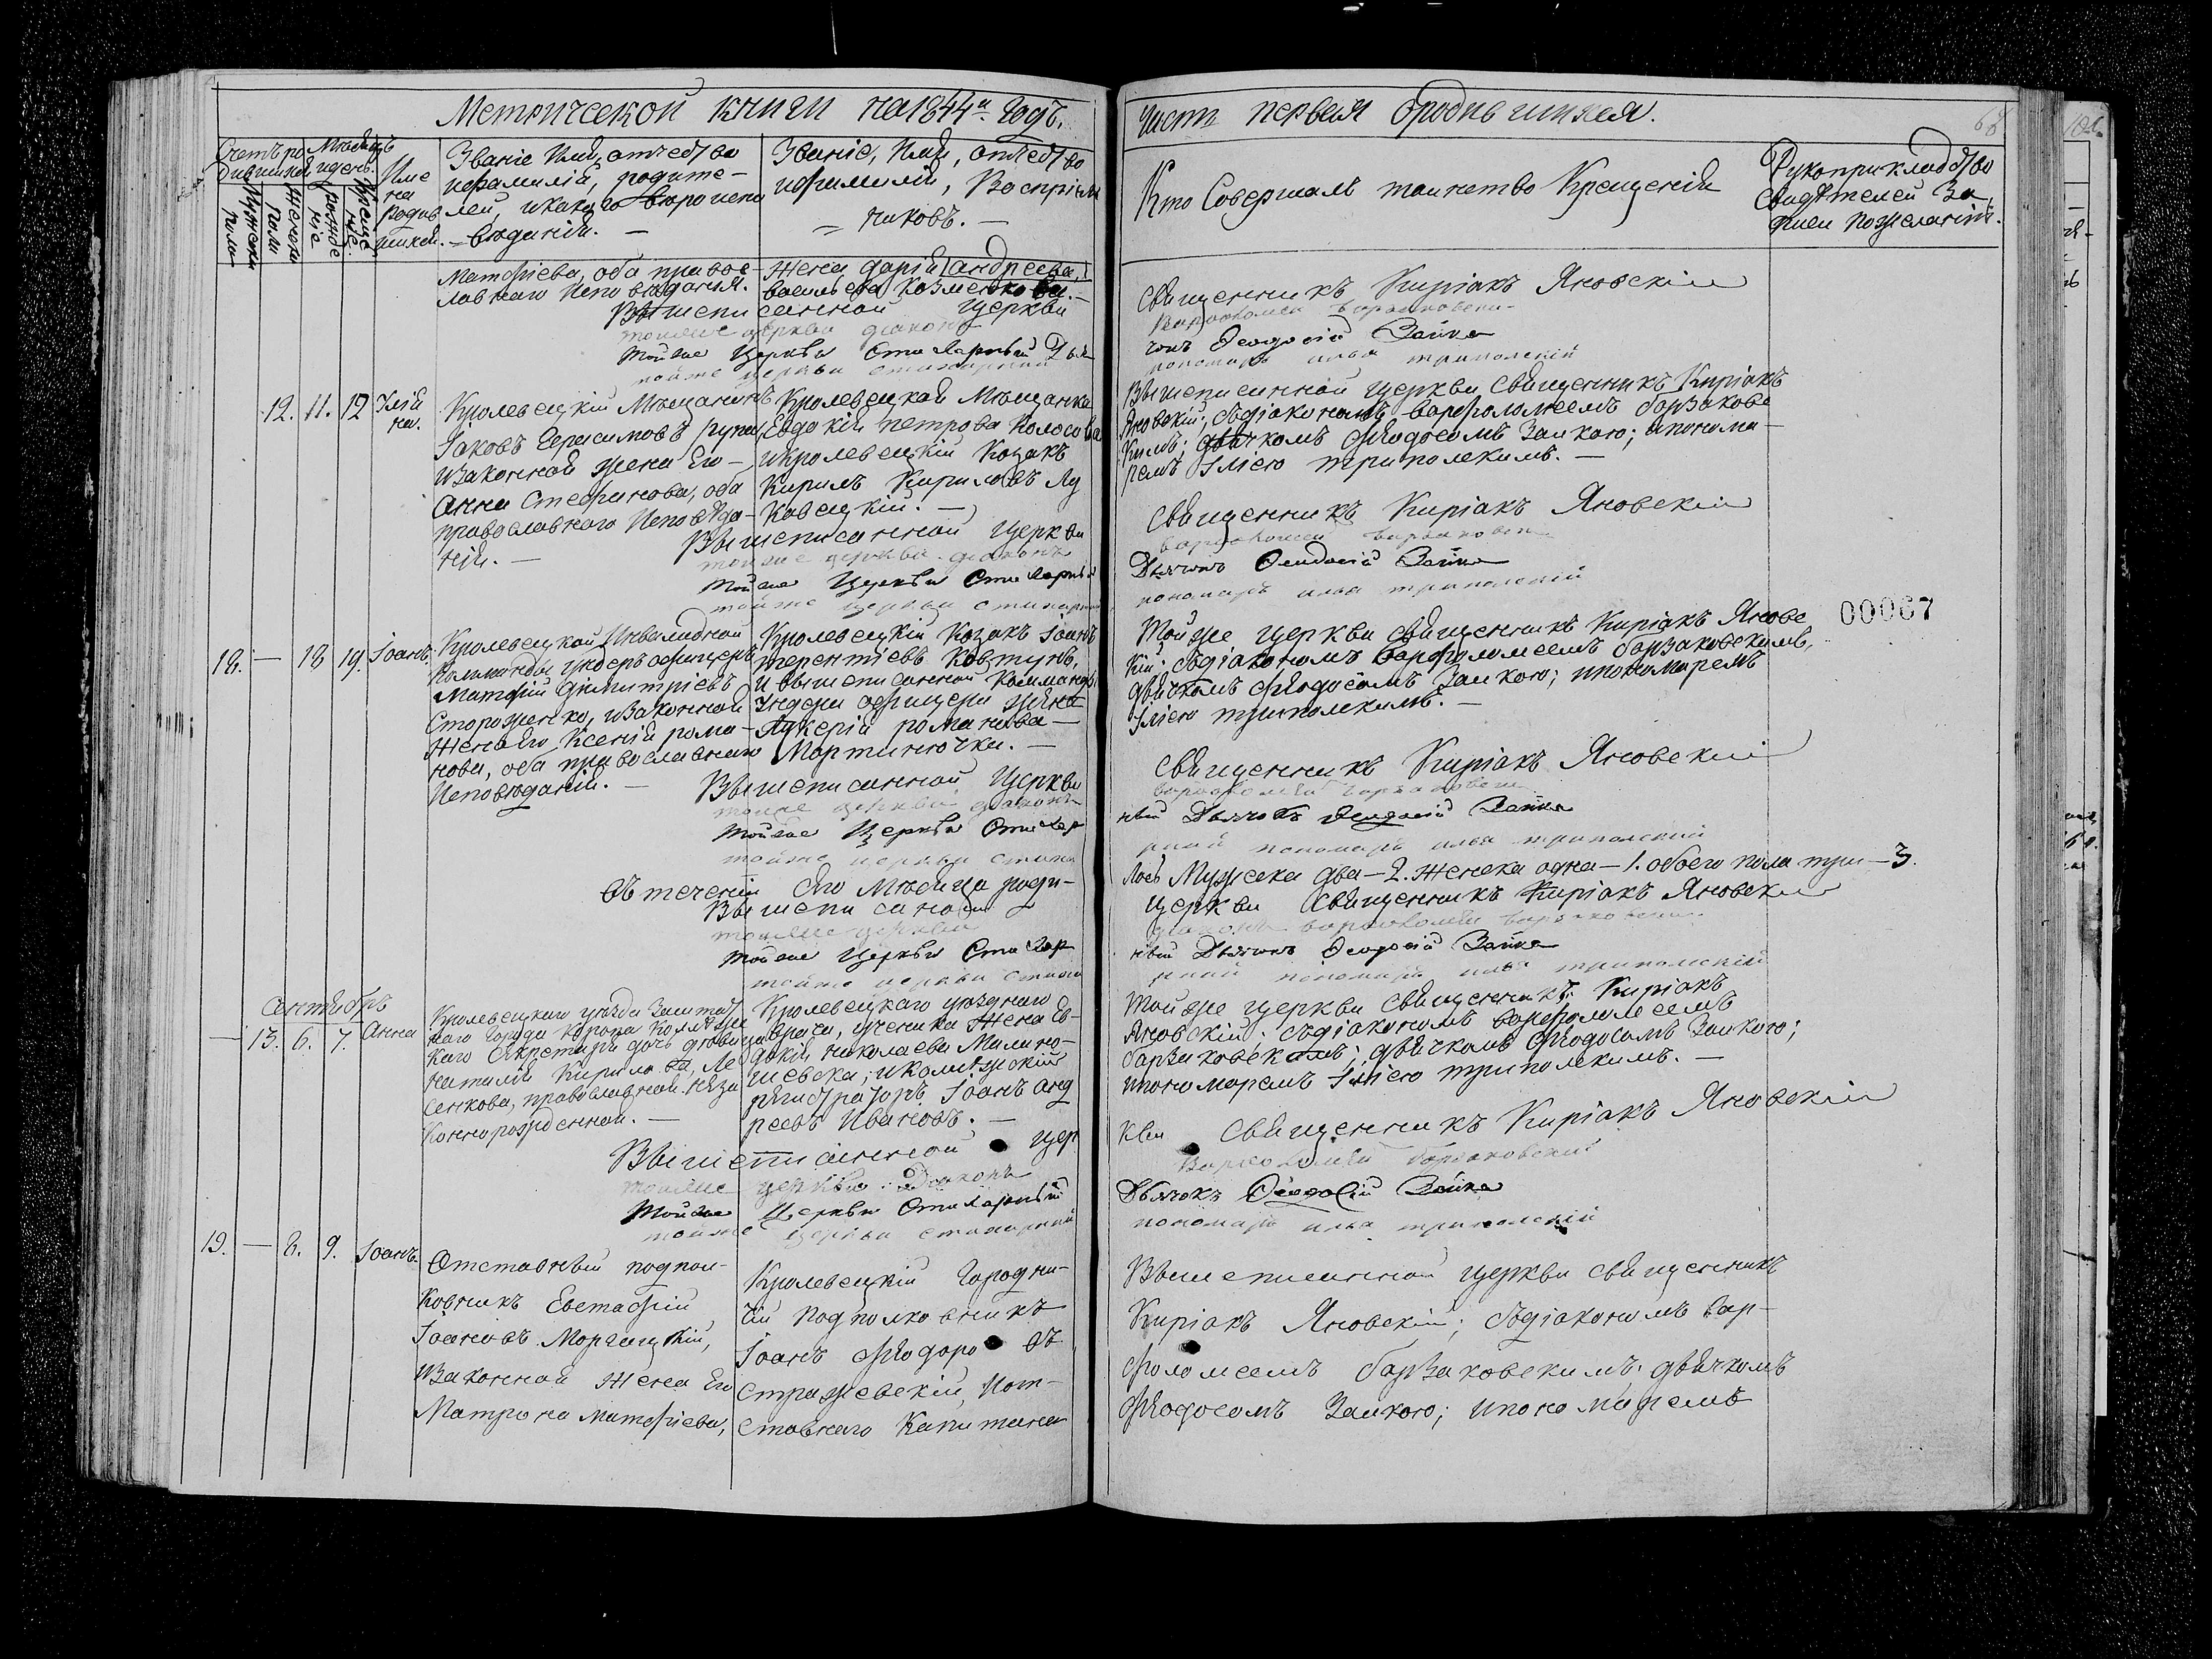 Метрической книги на 1844й Годъ.
Счетъ ро
дившихся
Мѣсяцъ
и день.
Мужеска
пола
Женска
пола
рожде
ніе
Креще
ніе
Име
на
родив
шихся.
Званіе Имя, отчество
и фамилія, родите-
лей, и какого вѣроиспо
вѣданія. —
Званіе, Имя, отчество
и фамилія, Воспріем
никовъ. —
Матфіева, оба правос-
лавнаго Исповѣданія.
Жена Дарія Андреева,
Васильева Козменкова. —
Вышеписанной Церкви
тойже церкви діаконъ
Тойже Церкви Стихарный Дья
тойже церкви стихарный
12. 11. 12 Юлія
на.
Кролевецкій Мѣщанинъ
Іаковъ Герасимовъ
и законная жена Его —
Анна Стефанова, оба
православнаго Исповѣда-
нія. —
Кролевецкая Мѣщанка
Евдокія Петрова Колосова
и кролевецкій Козакъ
Кирилъ Кириловъ Лу
кавецкій. —
Вышеписанной Церкви
тойже церкви діаконъ
Тойже Церкви Стихарный
тойже церкви стихарный
18. — 18 19. Іоанъ.
Кролевецкой Инвалидной
Команды ундеръ офицеръ
Матфій Димитріевъ
Стороженко, и законная
жена Его Ксенія рома-
нова, оба православнаго
Исповѣданія. —
Кролевецкій Козакъ Іоанъ
терентіевъ Ковтунъ,
и вышеписанной Команды
Ундера офицера жена
Лукерія романова —
Мартинючка. —
Вышеписанной Церкви
тойже церкви діаконъ
Тойже Церкви Стихар
тойже церкви стиха
Въ теченіи сего Мѣсяца роди-
Вышеписаной
тойже церкви
Тойже Церкви Стихар
тойже церкви стиха
Сентябрь
— 13. 6. 7. Анна
Кролевецкаго уѣзда Заштат
наго Города Коропа Колежс
каго Секретаря дочь дѣвица
Наталія Кирилова, Ле
сенкова, православной. Неза
коннорожденной. —
Кролевецкаго уѣзднаго
врача, ученика Жена Ев-
докія Николаева Милано-
шевска; и колежскій
регистраторъ Іоанъ Анд
реевъ Ивановъ. —
Вышеписанной Цер
тойже церкви: Діаконъ
Тойже Церкви Стихарный
тойже церкви стихарный
19. — 8. 9. Іоанъ.
Отставный подпол-
ковникъ Евстафій
Іоановъ Моргацкій,
и законная жена Его
Матрона Матфіева,
Кролевецкій Городни-
чій Подполковникъ
Іоанъ Феодоровъ
Стражевскій, и от-
ставнаго Капитана
Часть первая о родившихся.
68
Кто Совершалъ таинство Крещенія
Рукоприкладство
свидѣтелей За
писи по желанію.
Священникъ Киріакъ Яновскій
Варфоломей Барзаковскій
чокъ Феодосій Заика
пономарь илья триполскій
Вышеписанной церкви Священникъ Киріакъ
Яновскій, съ діакономъ Варфоломеемъ барзаковс
кимъ; дьячкомъ Феодосомъ Заикою; и понома-
ремъ Іліею триполскимъ. —
Священникъ Киріакъ Яновскій
варфоломей барзаковскій
Дьячокъ Феодосій Заика
пономарь илья триполскій
Тойже церкви священникъ Киріакъ Яновс
кій; съ діакономъ Варфоломеемъ барзаковскимъ,
дьячкомъ Феодосомъ Заикою; и пономаремъ
Іліею триполскимъ. —
00067
Священникъ Киріакъ Яновскій
варфоломей барзаковскій
ный Дьячокъ Феодосій Заика
рный пономарь илья триполский
лось Мужеска два — 2. Женска одна — 1. обоего пола три — 3.
Церкви Священникъ Киріакъ Яновскій
діаконъ варфоломей барзаковский
ный Дьячокъ Феодосій Заика
рный пономарь илья триполскій
Тойже церкви Священникъ Киріакъ
Яновскій; съ діакономъ варфоломеемъ
барзаковскимъ; дьячкомъ Феодосомъ Заикою;
и пономаремъ Іліею триполскимъ. —
кви Священникъ Киріакъ Яновскій
Варфоломей барзаковский
Дьячокъ Феодосій Заика
пономарь илья триполскій
Вышеписанной церкви священникъ
Киріакъ Яновскій; съ діакономъ Вар-
фоломеемъ барзаковскимъ; дьячкомъ
Феодосомъ Заикою; и пономаремъ